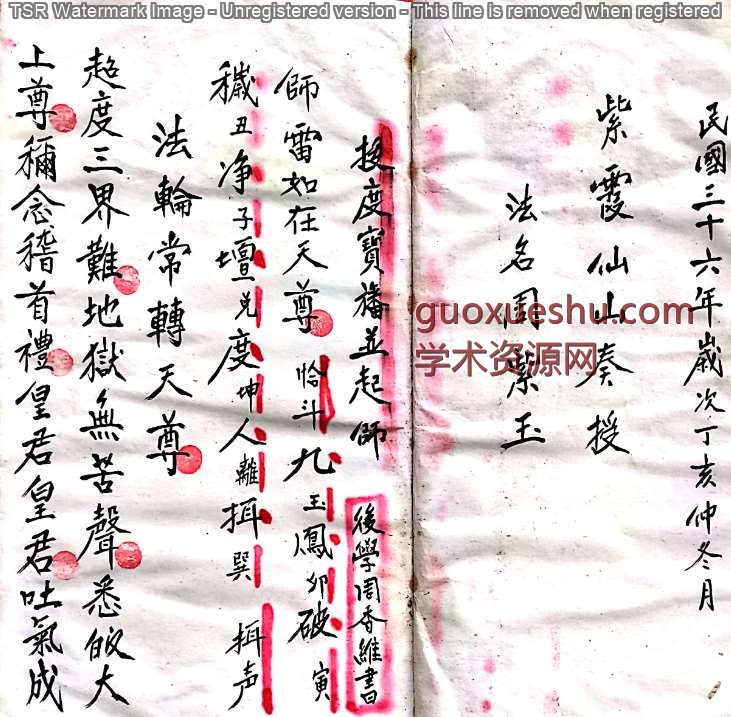 TSR Watermark Image - Unregistered version - This line is removed when registered
民國三十六年歲次丁亥仲冬月
紫霞仙山奏授
法名周紫玉
guoxueshu.com
学术资源网
授度寶旛並起師
後學周香維書
師雷如在天尊 恰斗九玉鳳卯破寅
穢丑净子壇兑度坤人離揖巽 揖声
法輪常轉天尊
超度三界難地獄無苦聲悉皈大
上尊稱念稽首禮皇君皇君吐氣成